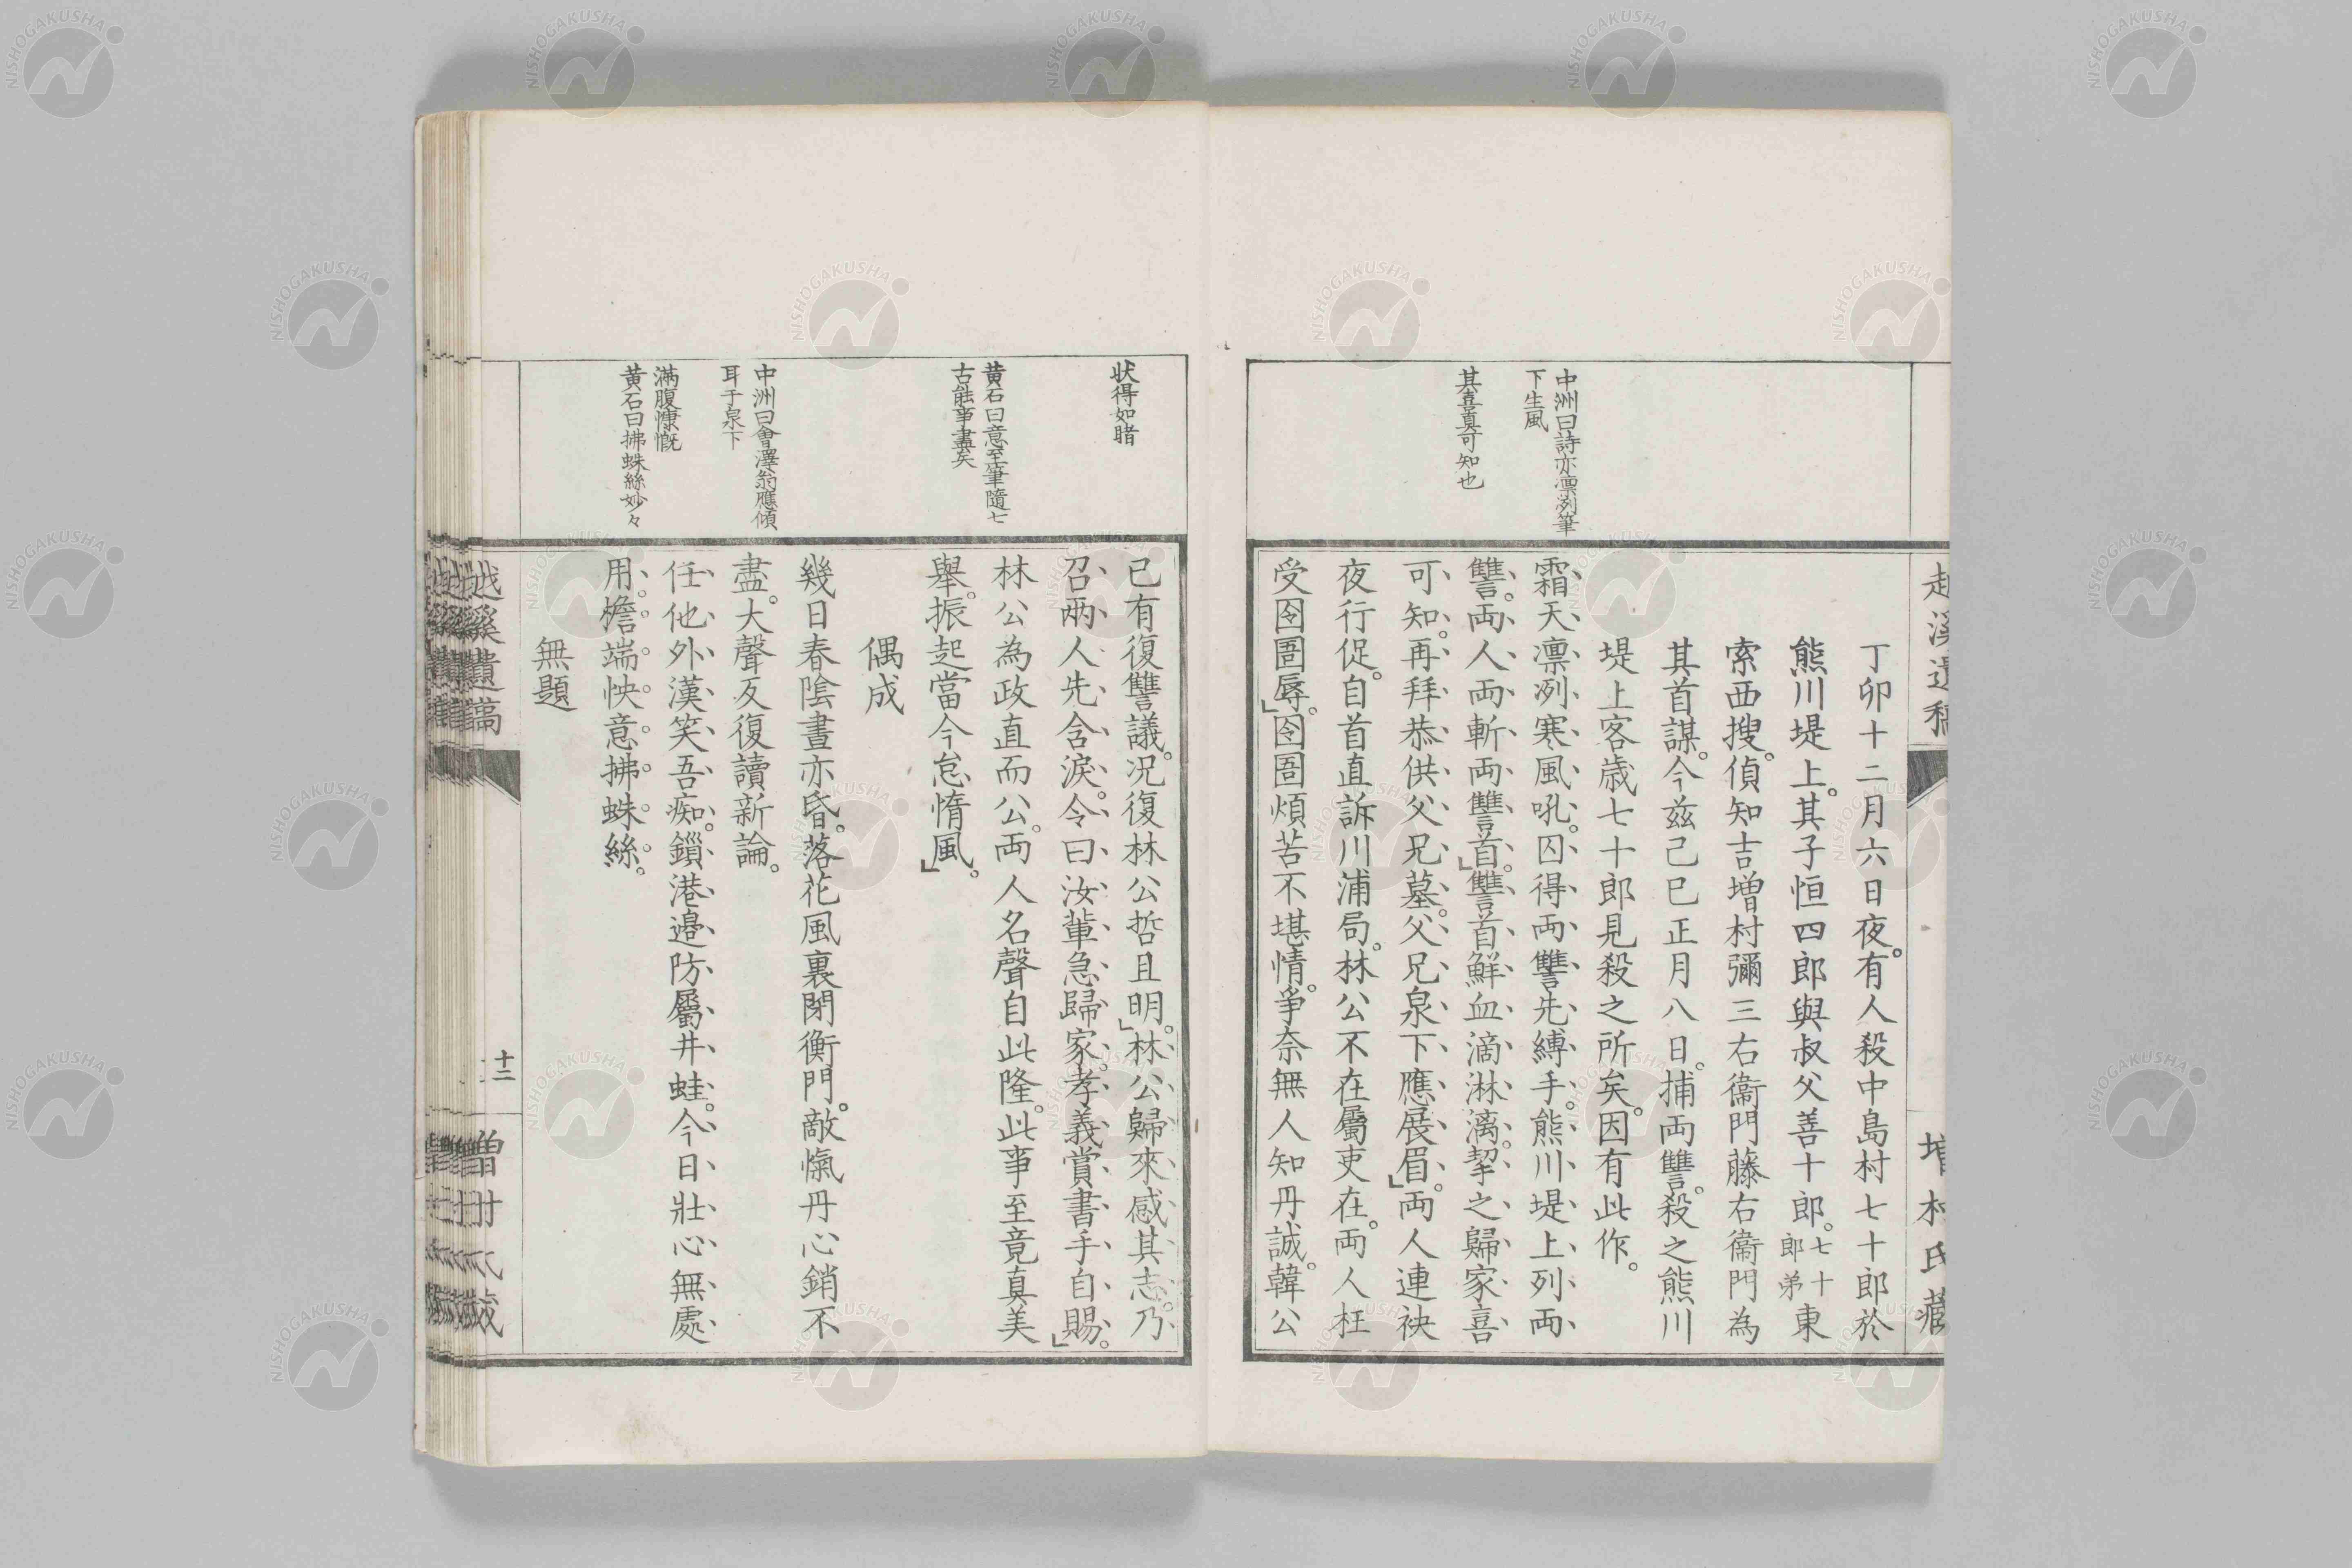 越溪遺稿
増村氏藏
丁卯十二月六日夜。有人殺中島村七十郎於
熊川堤上。其子恒四郎與叔父善十郎。七十郎弟東
索西搜。偵知吉増村彌三右衞門藤右衞門為
其首謀。今玆己巳正月八日。捕両讐。殺之熊川
堤上客歳七十郎見殺之所矣。因有此作。
中洲曰詩亦凛冽筆
下生風
霜天凛冽寒風吼。囚得両讐先縛手。熊川堤上列両
其喜真可知也
讐。両人両斬両讐首。」讐首鮮血滴淋漓。挈之歸家喜
可知。再拜恭供父兄墓。父兄泉下應展眉。」両人連袂
夜行促。自首直訴川浦局。林公不在屬吏在。両人枉
受囹圄辱。」囹圄煩苦不堪情。爭奈無人知丹誠。韓公
状得如睹
已有復讐議。况復林公哲且明。」林公歸來感其志。乃
召両人先含淚。令曰汝輩急歸家。孝義賞書手自賜。」
林公為政直而公。両人名聲自此隆。此事至竟真美
黄石曰意至筆隨七
古能事盡矣
舉。振起當今怠惰風。」
偶成
幾日春陰晝亦昏。落花風裏閉衡門。敵愾丹心銷不
中洲曰會澤翁應傾
耳于泉下
盡。大聲反復讀新論。
滿腹慷慨
任他外漢笑吾痴。鎻港邉防屬井蛙。今日壯心無處
黄石曰拂蛛絲妙々
用。檐端怏意拂蛛絲。
無題
越溪遺稿
十二
増村氏藏